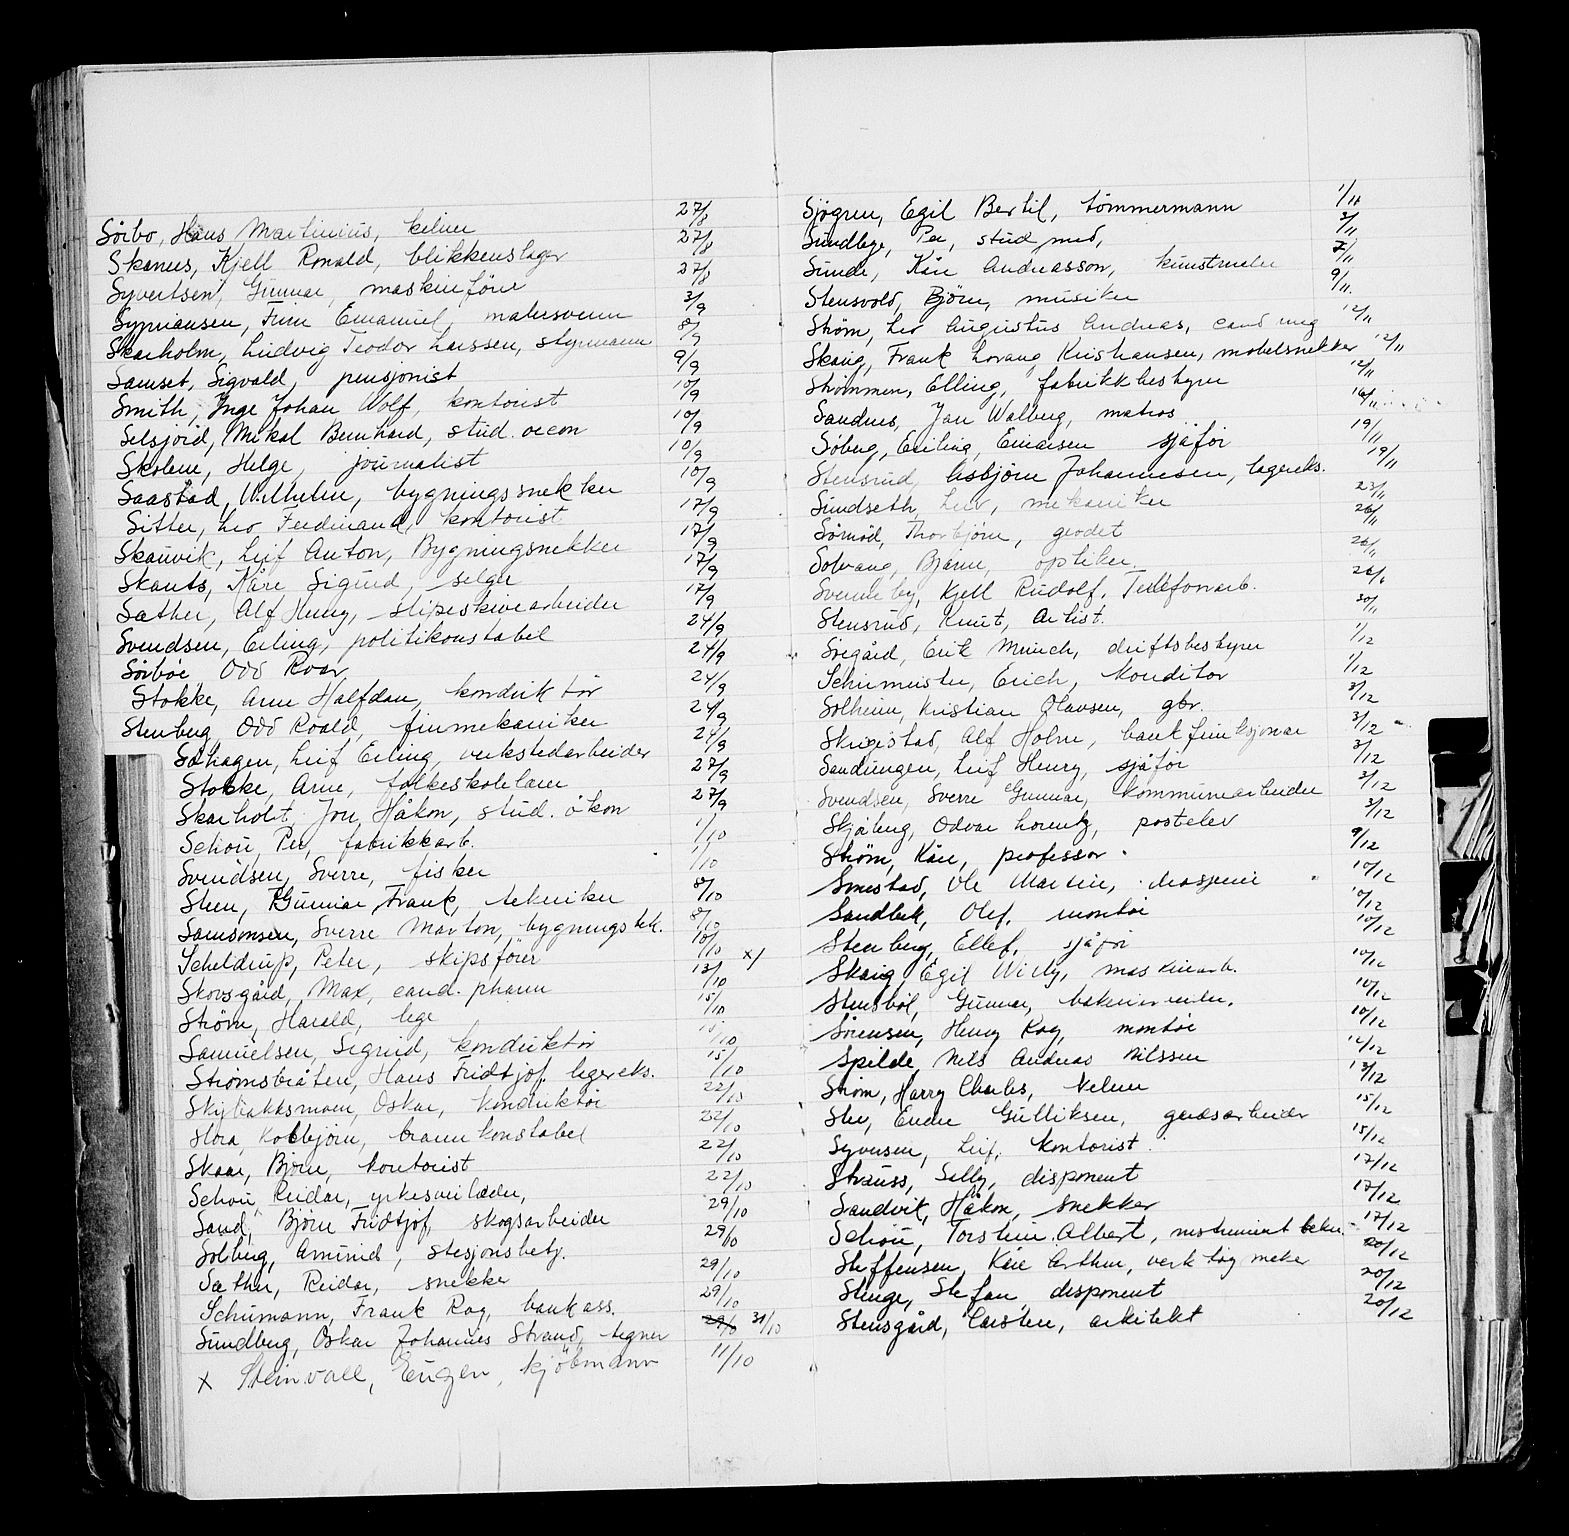 Sörbo, Hans Martinius, kelner 27/8
Skanes, Kjell Ronald, blikkenslager 27/8
Syvertsen, Gunnar, maskinförer 27/8
Sypriansen, Finn Emanuel, malersvenn 3/9
Skarholm, Ludvig Teodor Larssen, styrmann 8/9
Samset, Sigvald, pensjonist 9/9
Smith, Inge Johan Wolf, kontorist 10/9
Selsjord, Mikal Bernhard, stud. oecon 10/9
Skolem, Helge, journalist 10/9
Saastad, Wilhelm, bygningssnekker 10/9
Sitter, Leo Ferdinand, kontorist 17/9
Skauvik, Leif Anton, Bygningsnekker 17/9
Skants, Kåre Sigurd, selger 17/9
Sæther, Alf Henry, slipeskivearbeider 17/9
Svendsen, Erling, politikonstabel 24/9
Sörböe, Odd Roar 24/9
Stokke, Arne Halfdan, konduktör 24/9
Stenberg, Odd Roald, finmekaniker 24/9
Solhagen, Leif Erling, verkstedarbeider 24/9
Stokke, Arne, folkeskolelærer 27/9
Skarholt, Jon Håkon, stud. økon 27/9
Schou, Per, fabrikkarb. 1/10
Svendsen, Sverre, fisker 1/10
Steen, Gunnar Frank, tekniker 8/10
Samsonsen, Sverre Morton, bygningstek. 8/10
Scheldrup, Peter, skipsförer 10/10 x/
Skovsgård, Max, cand. pharm 13/10
Ström, Harald, lege 15/10
Samuelsen, Sigurd, konduktör 15/10
Strömsbråten, Hans Fridtjof, lagereks. 15/10
Oskar, konduktör 22/10
Kolbjörn, brannkonstabel 22/10
Skaar, Björn, kontorist 22/10
Schou, Reidar, yrkesveileder, 22/10
Sand, Björn Fridtjof, skogsarbeider 29/10
Solberg, Amund, stasjonsbetj. 29/10
Sæther, Reidar, snekker 29/10
Schumann, Frank Roy, bankass. 29/10
Sundberg, Oskar Johannes Strand, tegner 29/10 31/10
x Steinvall, Eugen, kjöbmann 11/10
Sjögren, Egil Bertil, tömmermann 1/11
Sundbye, Per, stud med, 3/11
Sunde, Kåre Andreasson, kunstmaler 7/11
Stensvold, Björn, musiker 9/11
Ström, Leo Augustus Andreas, cand mag 12/11
Skaug, Frank Lorang Kristiansen, møbelsnekker 12/11
Strömmen, Elling, fabrikkbestyrer 12/11
Sandnes, Jan Walberg, matros 16/11
Söberg, Erling Einarsen sjåför 19/11
Stensrud, Asbjörn Johannesen, lagereks. 19/11
Sundseth, Leiv, mekaniker 23/11
Thorbjörn, geodet 26/11
Solvang, Bjarne, optiker 26/11
Svenneby, Kjell Rudolf, Telefonarb. 26/11
Stensrud, Knut, Artist. 30/11
Solgård, Erik Munch, driftsbestyrer 1/12
Schirmeister, Erich, Konditor 1/12
Solheim, Kristian Olausen, gbr. 3/12
Skrugstad, Alf Holm, bankfunksjonær 3/12
Sandungen, Leif Henry, sjåför 3/12
Svendsen, Sverre Gunnar, kommunearbeider 3/12
Skjåberg, Odvar Lorentz, postelev 3/12
Ström, Kåre, professor 9/12
Smestad, Ole Martin, drosjeeier 10/12
Sandbek, Olef, montör 10/12
Stenberg, Ellef, sjåför 10/12
Skaug Egil Willy, maskinarb. 10/12
Stensböl, Gunnar, bakerarbeider. 10/12
Sörensen, Henry Roy, montör 10/12
Spilde, Nils Andreas Nilssen 12/12
Ström, Harry Charles, kelner 13/12
Gulliksen, gårdsarbeider 15/12
Syversen, Leif, kontorist 15/12
Strauss, Selly, disponent 17/12
Sandvik, Håkon, snekker 17/12
Schou, Torstein Albert, instrumentteknr. 17/12
Steffensen, Kåre Arthur, verktøymaker 20/12
Stenge, Stefan disponent 20/12
Stensgård, Carsten, arkitekt 20/12